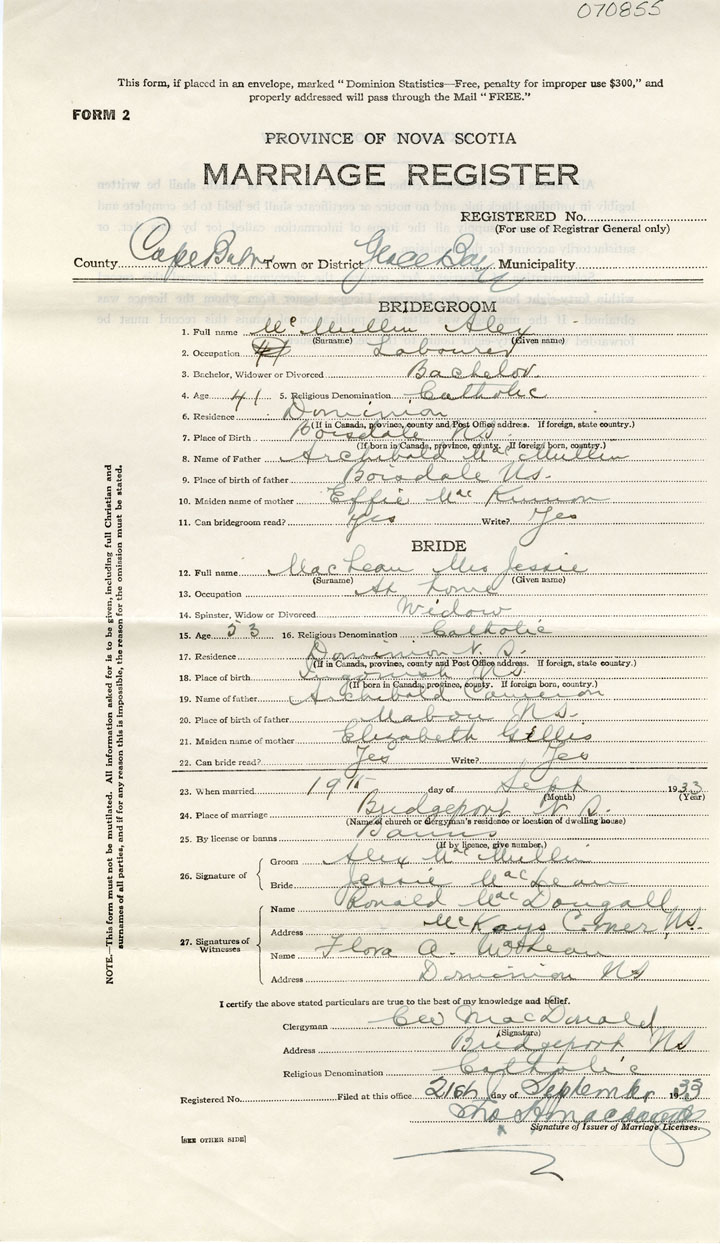 070855
This form, if placed in an envelope, marked "Dominion Statistics—Free, penalty for improper use $300," and
properly addressed will pass through the Mail "FREE."
FORM 2
PROVINCE OF NOVA SCOTIA
MARRIAGE REGISTER
REGISTERED No.
(For use of Registrar General only)
County Cape Breton Town or District Glace Bay Municipality
BRIDEGROOM
1. Full name McMullin Alex
(Surname) (Given name)
2. Occupation Labourer
3. Bachelor, Widower or Divorced Bachelor
4. Age 41 5. Religious Denomination Catholic
6. Residence Dominion
(If in Canada, province, county and Post Office address. If foreign, state country.)
7. Place of Birth Boisdale NS
(If born in Canada, province, county. If foreign born, country.)
8. Name of Father Archibald MacMullin
9. Place of birth of father Boisdale NS.
10. Maiden name of mother Effie MacKinnon
11. Can bridegroom read? Yes Write? Yes
BRIDE
12. Full name MacLean Mrs Jessie
(Surname) (Given name)
13. Occupation At home
14. Spinster, Widow or Divorced Widow
15. Age 53 16. Religious Denomination Catholic
17. Residence Dominion N.S.
(If in Canada, province, county and Post Office address. If foreign, state country.)
18. Place of birth Ingonish NS.
(If born in Canada, province, county. If foreign born, country.)
19. Name of father Archibald Cameron
20. Place of birth of father Mabou NS.
21. Maiden name of mother Elizabeth Gillis
22. Can bride read? Yes Write? Yes
23. When married 19th day of Sept 1933
(Month) (Year)
24. Place of marriage Bridgeport N.S.
(Name of church or clergyman's residence or location of dwelling house)
25. By license or banns Banns
(If by licence, give number.)
26. Signature of Groom Alex McMullin
Bride Jessie MacLean
27. Signatures of Witnesses
Name Ronald MacDougall
Address McKays Corner NS.
Name Flora A. McLean
Address Dominion NS
I certify the above stated particulars are true to the best of my knowledge and belief.
Clergyman MacDonald
(Signature)
Address Bridgeport NS
Religious Denomination Catholic
Registered No. Filed at this office 21st day of September 1933
Signature of Issuer of Marriage Licenses.
[SEE OTHER SIDE]
NOTE.—This form must not be mutilated. All information asked for is to be given, including full Christian and
surnames of all parties, and if for any reason this is impossible, the reason for the omission must be stated.